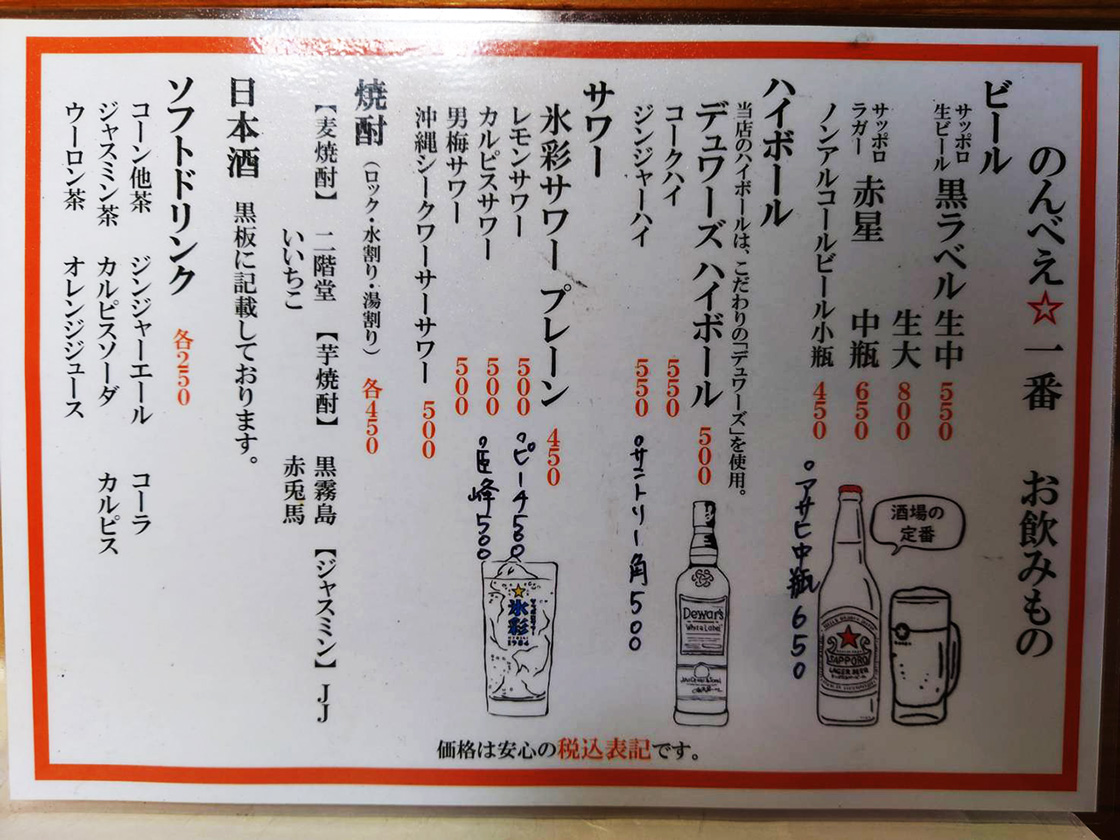 のんべえ☆一番 お飲みもの
ビール
サッポロ生ビール 黒ラベル 生中 550
生大 800
サッポロラガー 赤星 中瓶 650
ノンアルコールビール小瓶 450
。アサヒ中瓶 650
酒場の
定番
SAPPORO
LAGER BEER
ハイボール
当店のハイボールは、こだわりの「デュワーズ」を使用。
デュワーズ ハイボール 500
コークハイ 550
ジンジャーハイ 550
。サントリー角 500
Dewar's
White Label
サワー
氷彩サワー プレーン 450
レモンサワー 500
。ピーチ 500
カルピスサワー 500
。巨峰 500
男梅サワー 500
沖縄シークワーサーサワー 500
氷彩
1984
焼酎 (ロック・水割り・湯割り) 各450
【麦焼酎】 二階堂 【芋焼酎】 黒霧島 【ジャスミン】 JJ
いいちこ 赤兎馬
日本酒 黒板に記載しております。
ソフトドリンク 各250
コーン他茶 ジンジャーエール コーラ
ジャスミン茶 カルピスソーダ カルピス
ウーロン茶 オレンジジュース
価格は安心の税込表記です。